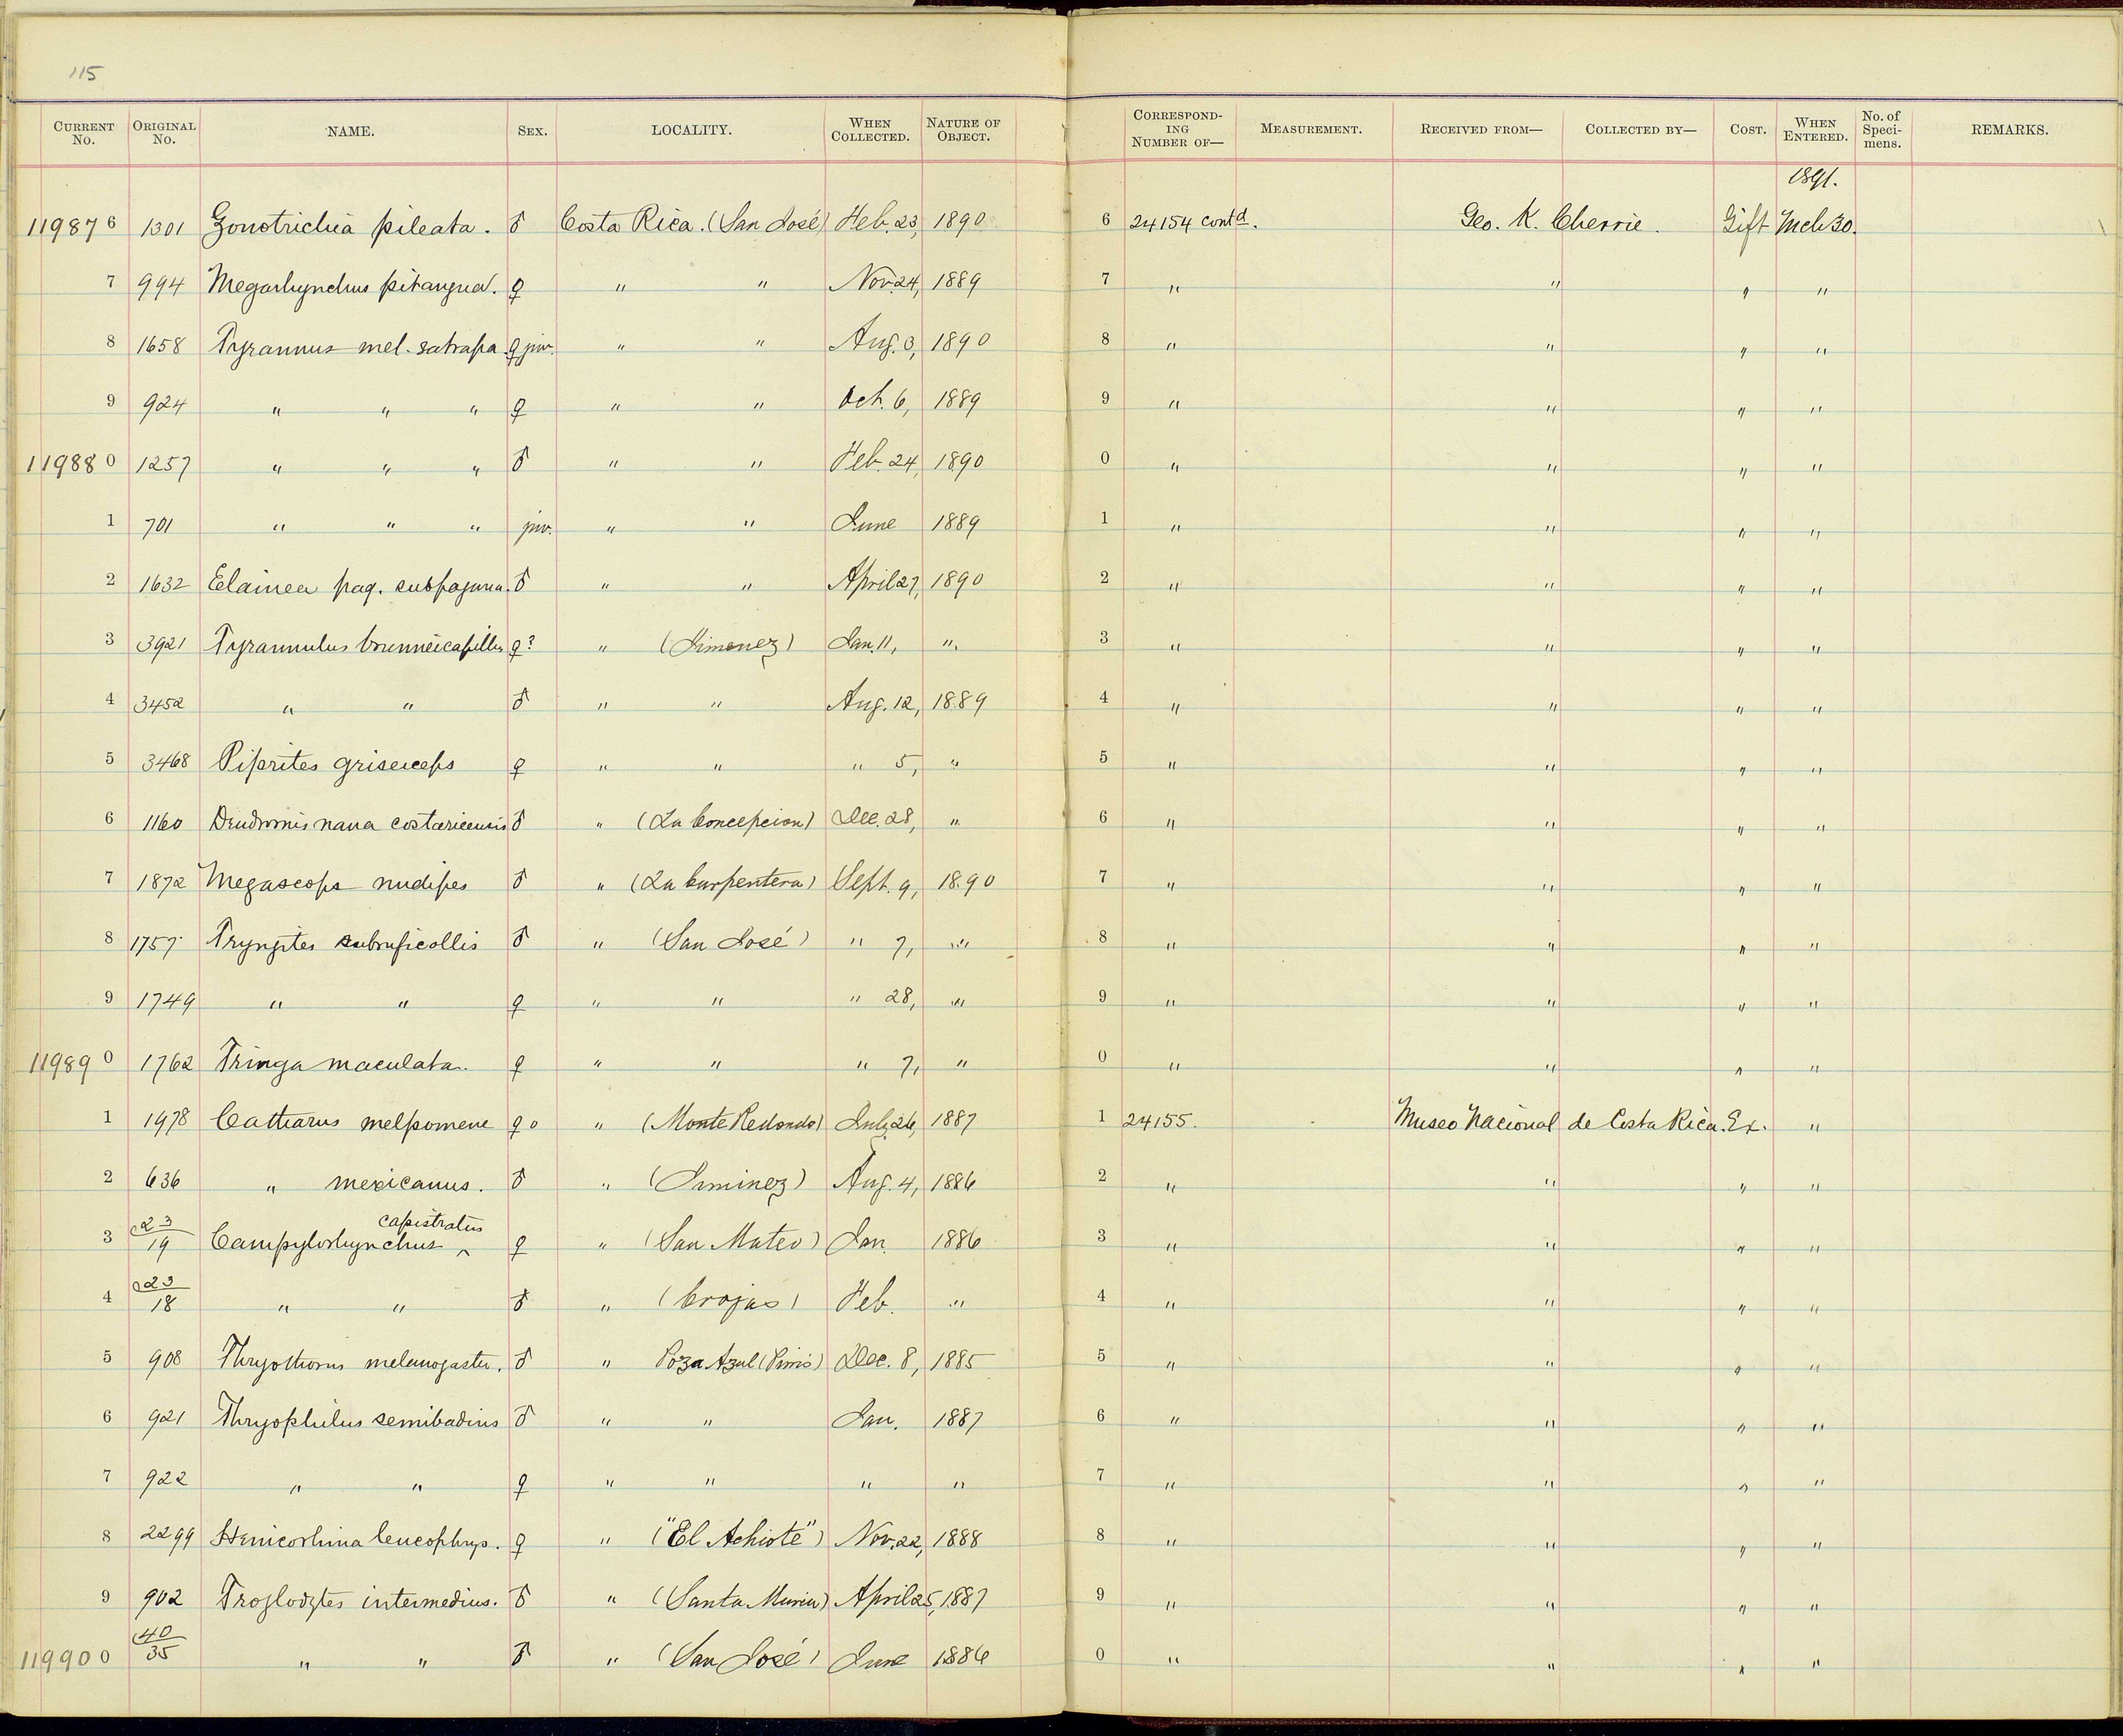 115
CURRENT No. ORIGINAL No. NAME. SEX. LOCALITY. WHEN COLLECTED. NATURE OF OBJECT. CORRESPONDING NUMBER OF— MEASUREMENT. RECEIVED FROM— COLLECTED BY— COST. WHEN ENTERED. No. of Specimens. REMARKS.
1891.
119876 1301 Zonotrichia pileata. ♂ Costa Rica. (San José) Feb. 23, 1890 6 24154 contd. Geo. K. Cherrie. Gift Mch 30.
7 994 Megarhynchus pitangua. ♀ " " Nov. 24, 1889 7 " " " "
8 1658 Tyrannus mel. satrapa. ♀ juv. " " Aug. 3, 1890 8 " " " "
9 924 " " " ♀ " " Oct. 6, 1889 9 " " " "
119880 1257 " " " ♂ " " Feb. 24, 1890 0 " " " "
1 701 " " " juv. " " June 1889 1 " " " "
2 1632 Elainea pag. subpagana. ♂ " " April 27, 1890 2 " " " "
3 3921 Tyrannulus brunneicapillus ♀? " (Jimenez) Jan. 11, ". 3 " " " "
4 3452 " " ♂ " " Aug. 12, 1889 4 " " " "
5 3468 Piprites griseiceps ♀ " " " 5, " 5 " " " "
6 1160 Dendrornis nana costaricensis ♂ " (La Concepcion) Dec. 28, " 6 " " " "
7 1872 Megascops nudipes ♂ " (La Carpentera) Sept. 9, 1890 7 " " " "
8 1757 Tryngites subruficollis ♂ " (San José) " 7, " 8 " " " "
9 1749 " " ♀ " " " 28, " 9 " " " "
119890 1762 Tringa maculata. ♀ " " " 7, " 0 " " " "
1 1978 Catharus melpomene ♀ o " (Monte Redondo) July 26, 1887 1 24155. Museo Nacional de Costa Rica. Ex. "
2 636 " mexicanus. ♂ " (Jiminez) Aug. 4, 1886 2 " " " "
3 23/19 Campylorhynchus ^ capistratus ♀ " (San Mateo) Jan. 1886 3 " " " "
4 23/18 " " ♂ " Feb. " 4 " " " "
5 908 Thryothorus melanogaster. ♂ " Poza Azul (Pirris) Dec. 8, 1885 5 " " " "
6 921 Thryophilus semibadius ♂ " " Jan. 1887 6 " " " "
7 922 " " ♀ " " " " 7 " " " "
8 2299 Henicorhina leucophrys. ♀ " ("El Achiote") Nov. 22, 1888 8 " " " "
9 902 Troglodytes intermedius. ♂ " (Santa Maria) April 25, 1887 9 " " " "
119900 40/35 " " ♂ " (San José) June 1886 0 " " " "